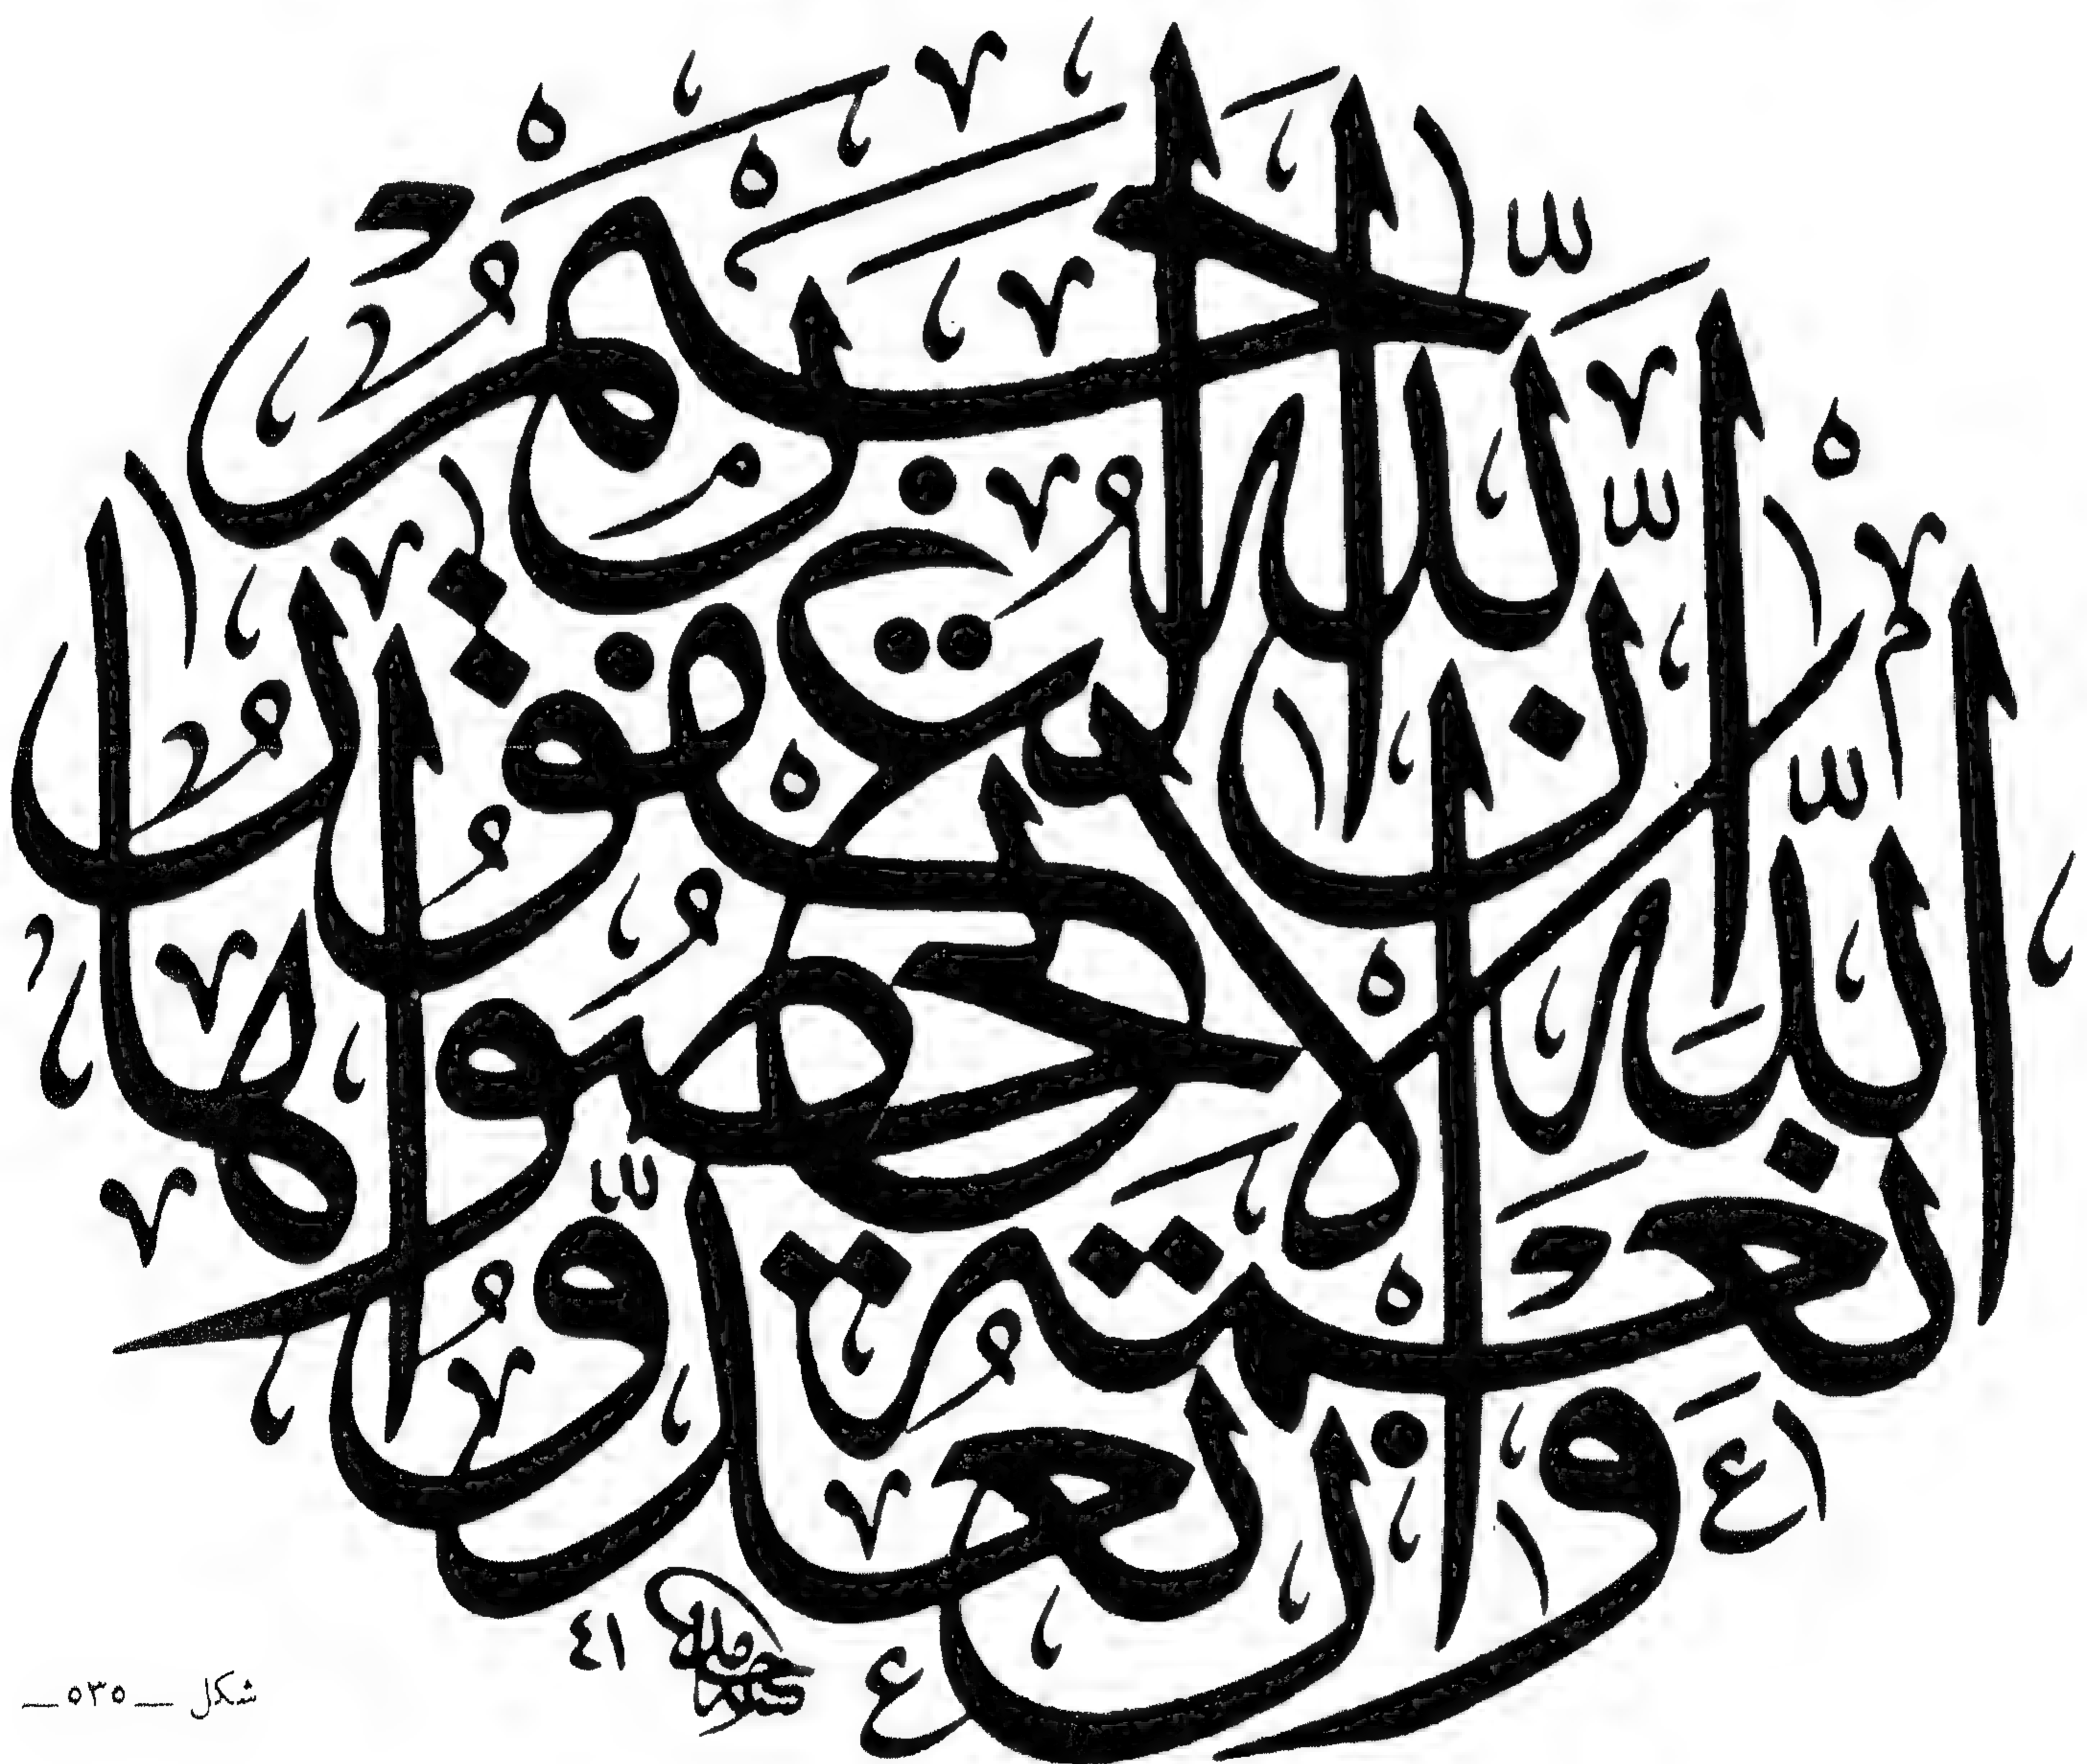 وَإِنْ تَعُدُّوا نِعْمَةَ اللَّهِ لَا تُحْصُوهَا إِنَّ اللَّهَ لَغَفُورٌ رَحِيمٌ
٤١
شكل _ ٥٣٥ _